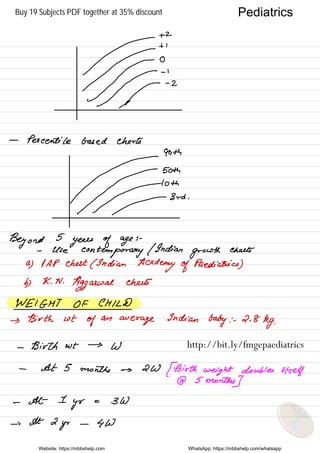 Buy 19 Subjects PDF together at 35% discount
Pediatrics
+2
+1
0
-1
-2
— Percentile based charts
90th
50th
10th
3rd.
Beyond 5 years of age:-
- Use contemporary / Indian growth charts
a) IAP chart (Indian Academy of Paediatrics)
b) K.N. Aggarwal charts
WEIGHT OF CHILD
→ Birth wt of an average Indian baby:- 2.8 kg.
- Birth wt → W
http://bit.ly/fmgepaediatrics
- At 5 months → 2W [Birth weight doubles itself
@ 5 months]
- At 1 yr = 3W
→ At 2 yr - 4W
Website: https://mbbshelp.com
WhatsApp: https://mbbshelp.com/whatsapp